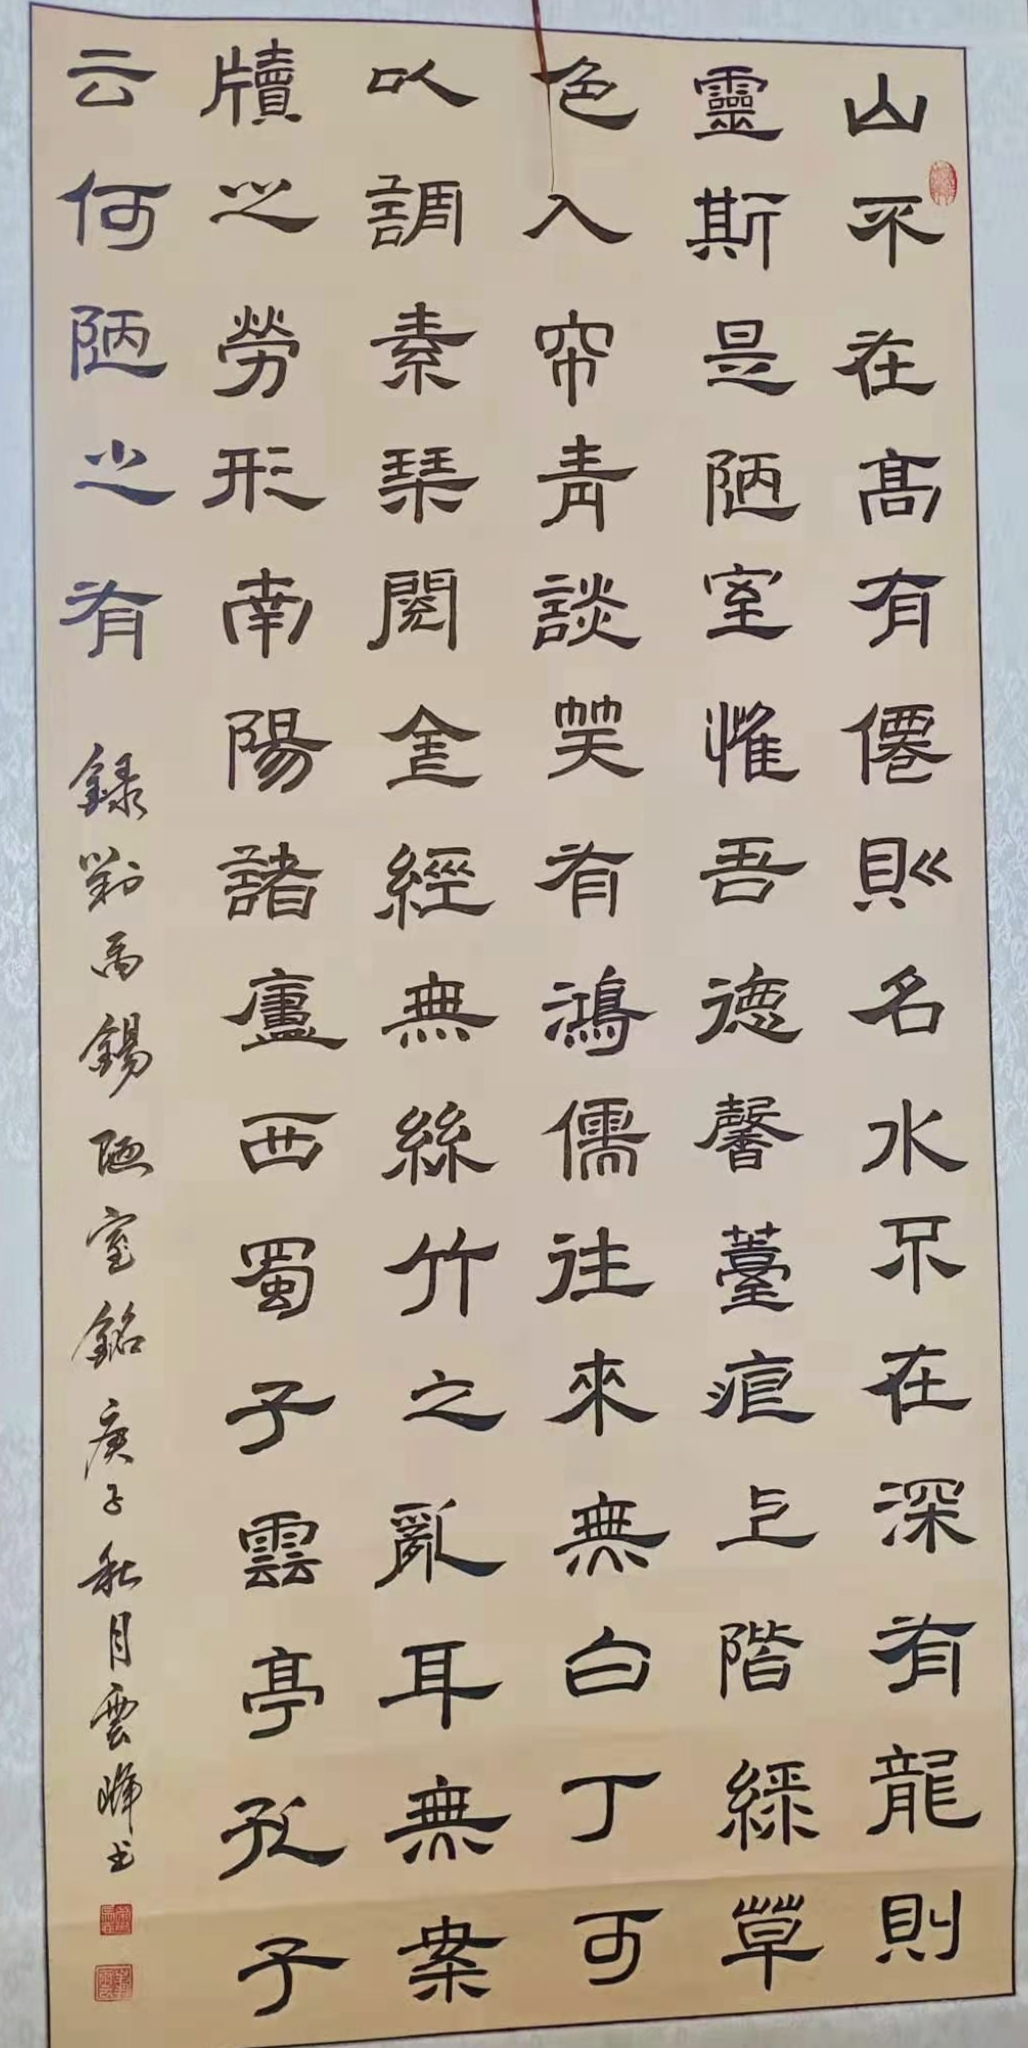 山不在高有僊則名水不在深有龍則
靈斯是陋室惟吾德馨薹痕上階綠草
色入帘青談笑有鴻儒往來無白丁可
以調素琴閱金經無絲竹之亂耳無案
牘之勞形南陽諸廬西蜀子雲亭孔子
云何陋之有 錄劉禹錫陋室銘庚子秋月雲暉书